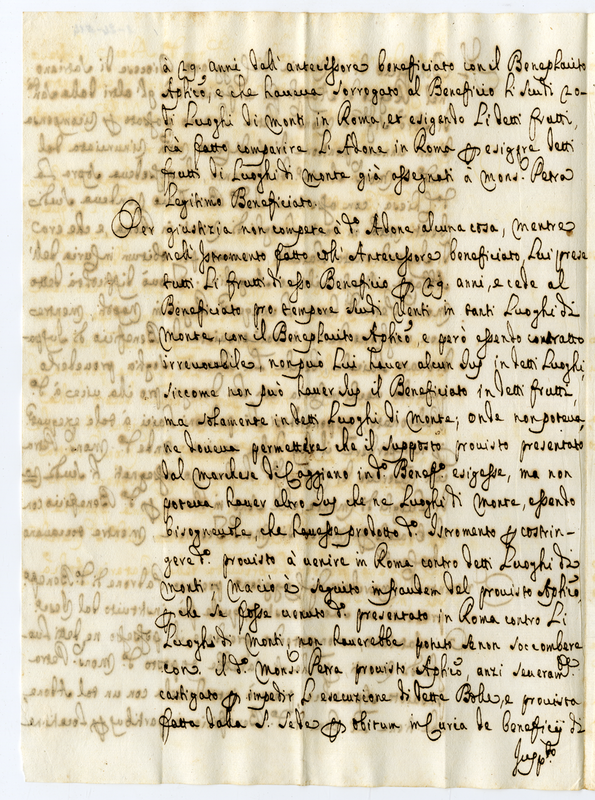 à 29. anni dall' antecessore beneficiato con il Beneplacito
Aplico, e che haveva sorrogato al Beneficio li scudi 20-
di Luoghi di Monti in Roma, et esigendo Li detti frutti,
hà fatto comparire L'Adone in Roma p esigere detti
frutti di Luoghi di Monte già assegnati à Mons. Petra
Legitimo Beneficiato.
Per giustizia non compete a do. Adone alcuna cosa, mentre
nell' Istromento fatto coll' Antecessore beneficiato, Lui prese
tutti Li frutti di esso Beneficio p 29. anni, e cede al
Beneficiato pro tempore scudi Venti in tanti Luoghi di
Monte, con il Beneplacito Aplico, e però essendo contratto
irrevocabile, non può Lui haver alcun Jus in detti Luoghi,
siccome non può haver Jus il Beneficiato in detti frutti,
ma solamente in detti Luoghi di Monte; onde non poteva,
ne doveva permettere che il supposto provisto presentato
dal Marchese di Caggiano in do. Benefo. esigesse, ma non
poteva haver altro Jus che ne Luoghi di Monte, essendo
bisognevole, che havesse prodotto do. Istromento p costrin-
gere do. provisto à venire in Roma contro detti Luoghi di
monti; ma ciò è seguito in fraudem del provisto Aplico,
p che se fosse venuto do. presentato in Roma contro Li
Luoghi di Monti, non haverebbe potuto se non soccombere
con il do. Mons. Petra provisto Aplico, anzi severamte.
castigato p impedir L'esecuzione di dette Bolle, e provista
fatta dalla S. Sede p obitum in Curia de beneficij di